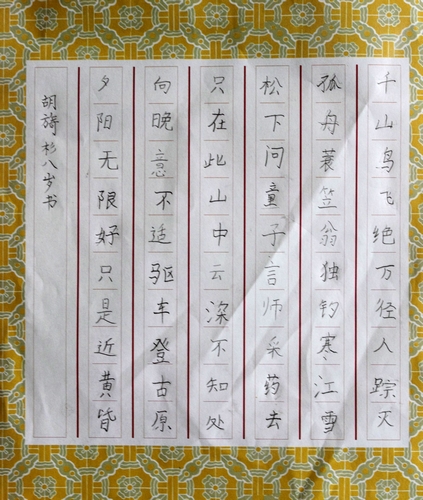 千山鸟飞绝万径人踪灭
孤舟蓑笠翁独钓寒江雪
松下问童子言师采药去
只在此山中云深不知处
向晚意不适驱车登古原
夕阳无限好只是近黄昏
胡旖杉八岁书